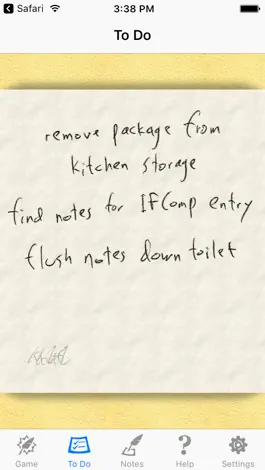 Safari
3:38 PM
To Do
remove package from
kitchen storage
find notes for IFComp entry
flush notes down toilet
Game
To Do
Notes
Help
Settings